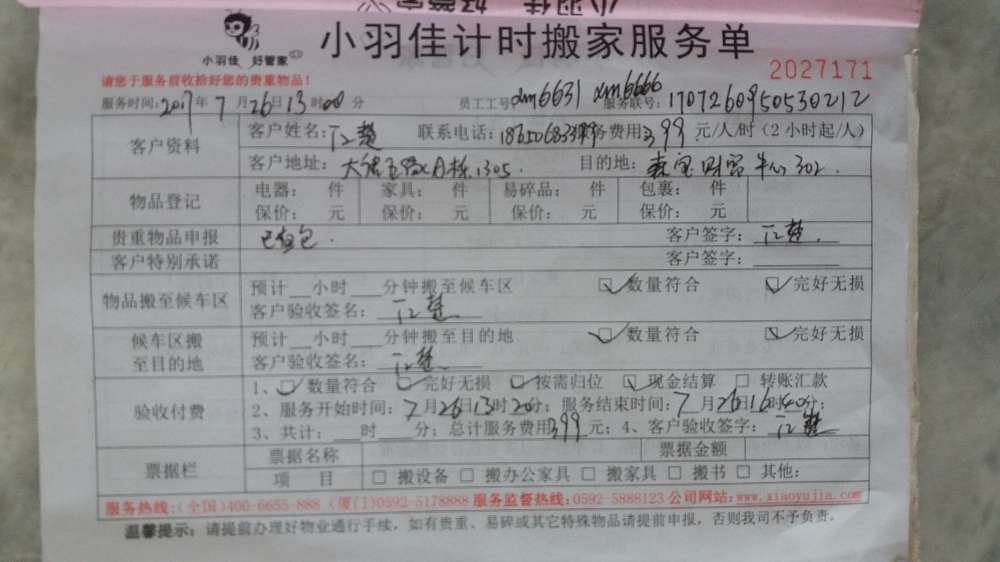 小羽佳 好管家
小羽佳计时搬家服务单
请您于服务前收拾好您的贵重物品！
2027171
服务时间：2017年7月26日13时00分 员工工号 xm6631 xm6666 服务联号：1707260950530212
客户资料
客户姓名： 联系电话： 服务费用：399元/人/时（2小时起/人）
客户地址： A栋1305. 目的地： 财富中心302.
物品登记
电器： 件 家具： 件 易碎品： 件 包裹： 件
保价： 元 保价： 元 保价： 元 保价： 元
贵重物品申报 已包 客户签字：
客户特别承诺 客户签字：
物品搬至候车区
预计__小时___分钟搬至候车区 ☑数量符合 ☑完好无损
客户验收签名：
候车区搬至目的地
预计__小时___分钟搬至目的地 ☑数量符合 ☑完好无损
客户验收签名：
验收付费
1、☑数量符合 ☑完好无损 ☑按需归位 ☑现金结算 □转账汇款
2、服务开始时间：7月26日13时20分；服务结束时间：7月26日16时40分；
3、共计：___时___分；总计服务费用399元；4、客户验收签字：
票据栏
票据名称 票据金额
项 目 □搬设备 □搬办公家具 □搬家具 □搬书 □其他：
服务热线：（全国）400-6655-888（厦门）0592-5178888 服务监督热线：0592-5888123 公司网站：www.xiaoyujia.com
温馨提示：请提前办理好物业通行手续，如有贵重、易碎或其它特殊物品请提前申报，否则我司不予负责。